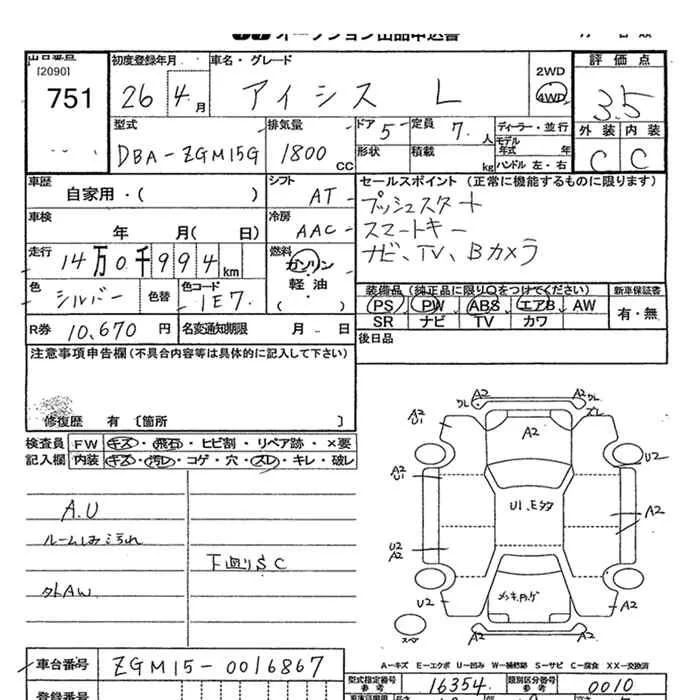 オークション出品申込書
出品番号 初度登録年月 車名・グレード 2WD 評価点
[2090]
751 26年 4月 アイシス L 4WD 3.5
型式 排気量 ドア 5 定員 7人 ディーラー・並行 外装 内装
DBA-ZGM15G 1800 CC 形状 積載 kg モデル年式 年 C C
ハンドル 左・右
車歴 シフト セールスポイント (正常に機能するものに限ります)
自家用・( ) AT プッシュスタート
車検 冷房 スマートキー
年 月( 日) AAC ナビ、TV、Bカメラ
走行 14万0千994km 燃料 ガソリン
色 色替 色コード 軽油 装備品 (純正品に限り○をつけてください) 新車保証書
シルバー 1E7 ・( ) PS PW ABS エアB AW 有・無
R券 10,670円 名変通知期限 月 日 SR ナビ TV カワ
注意事項申告欄(不具合内容等は具体的に記入して下さい) 後日品
修復歴 有 〔箇所 〕
検査員 FW キズ・飛石・ヒビ割・リペア跡・×要
記入欄 内装 キズ・汚レ・コゲ・穴・スレ・キレ・破レ
A2 A2
A2 U1 ワレ ワレ ズレ
A2
U2
A2 U1
U1.Eタタ A2
U2 A2
U2 A2
スペア A2 A2
A.U
ルームしみ汚れ
下廻りSC
外AW
A-キズ E-エクボ U-凹み W-補修跡 S-サビ C-腐食 XX-交換済
車台番号 ZGM15-0016867
型式指定番号 参考 16354 類別区分番号 参考 0010
登録番号